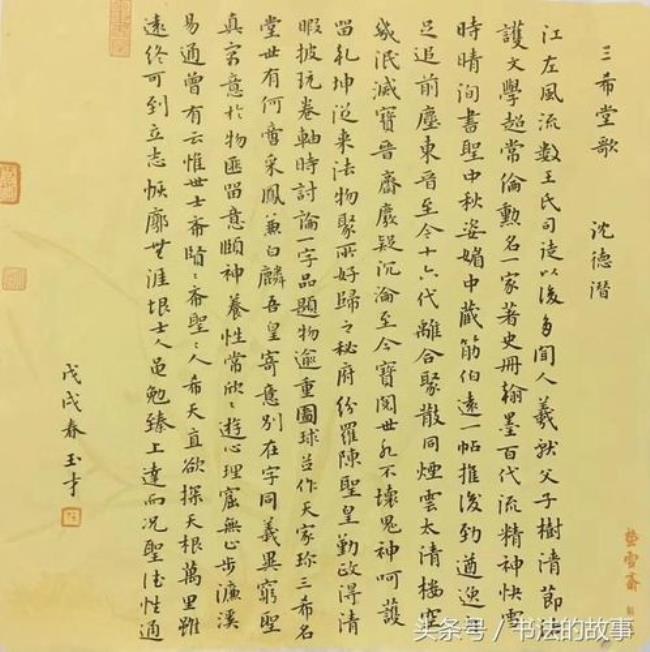 三希堂歌 沈德潛
江左風流數王氏司徒以後多聞人羲獻父子樹清節法
護文學超常倫勲名一家著史冊翰墨百代流精神快雪
時晴洵書聖中秋姿媚中藏筋伯遠一帖推後勁遒逸
足追前塵東晉至今十六代離合聚散同煙雲太清樓空
幾泯滅寶晉齋廢疑沉淪至今寶閱世永不壞鬼神呵護
留乾坤從来法物聚所好歸之秘府紛羅陳聖皇勤政得清
暇披玩卷軸時討論一字品題物逾重圖球並作天家珍三希名
堂世有何啻采鳳兼白麟吾皇寄意別在字同義異窮聖
真寓意於物匪留意頤神養性常欣〻遊心理窟無止步濂溪
易通曾有云惟世士希賢〻希聖〻人希天直欲探天根萬里雖
遠終可到立志恢廓無涯垠士人虽勉臻上達而况聖德性通
戊戌春玉才
螢雪齋
头条号 / 书法的故事